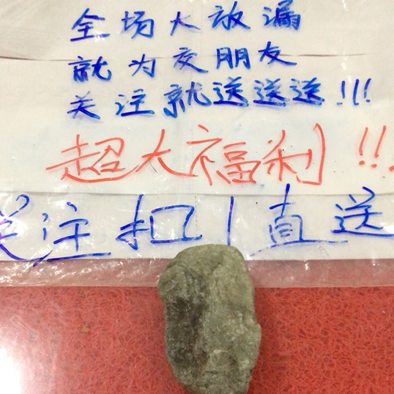 全场大放漏
就为交朋友
关注就送送送!!!
超大福利!!!
关注扣1直送